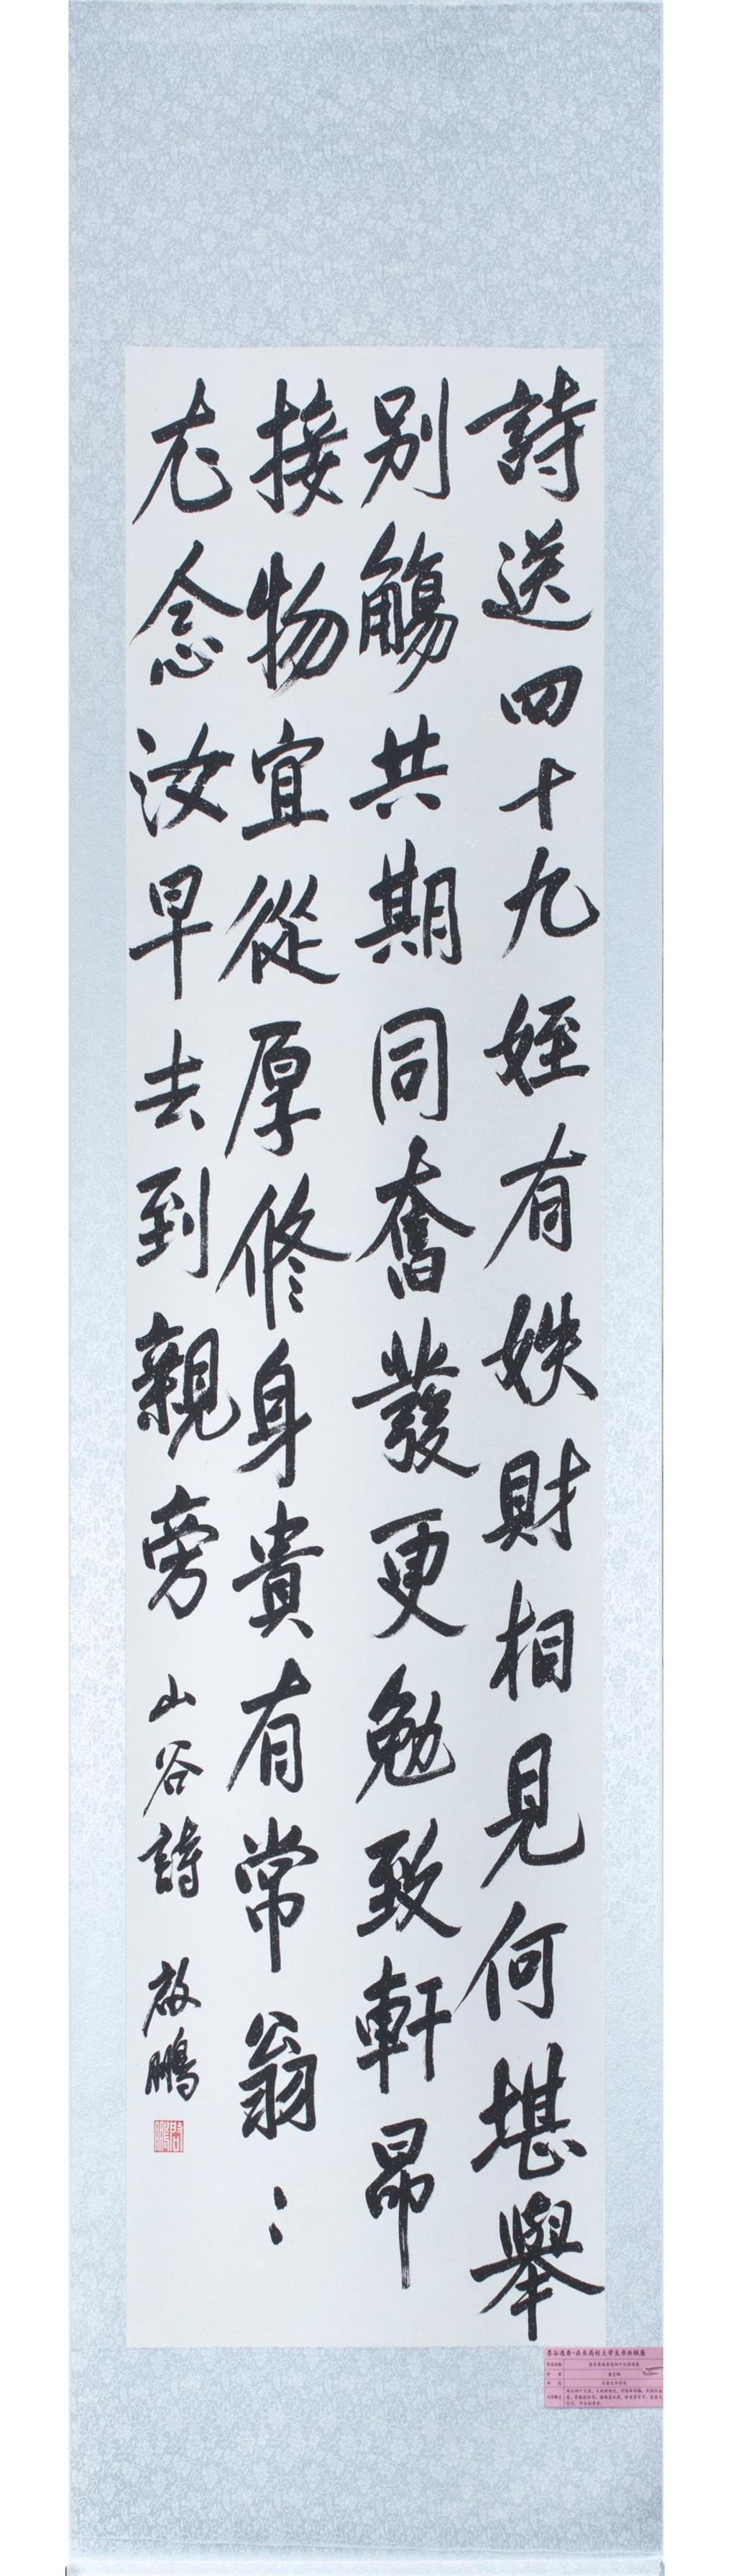 詩送四十九姪有妷財相見何堪舉
別觴共期同奮發更勉致軒昂
接物宜從厚修身貴有常翁〻
尤念汝早去到親旁
山谷詩 啟鵬